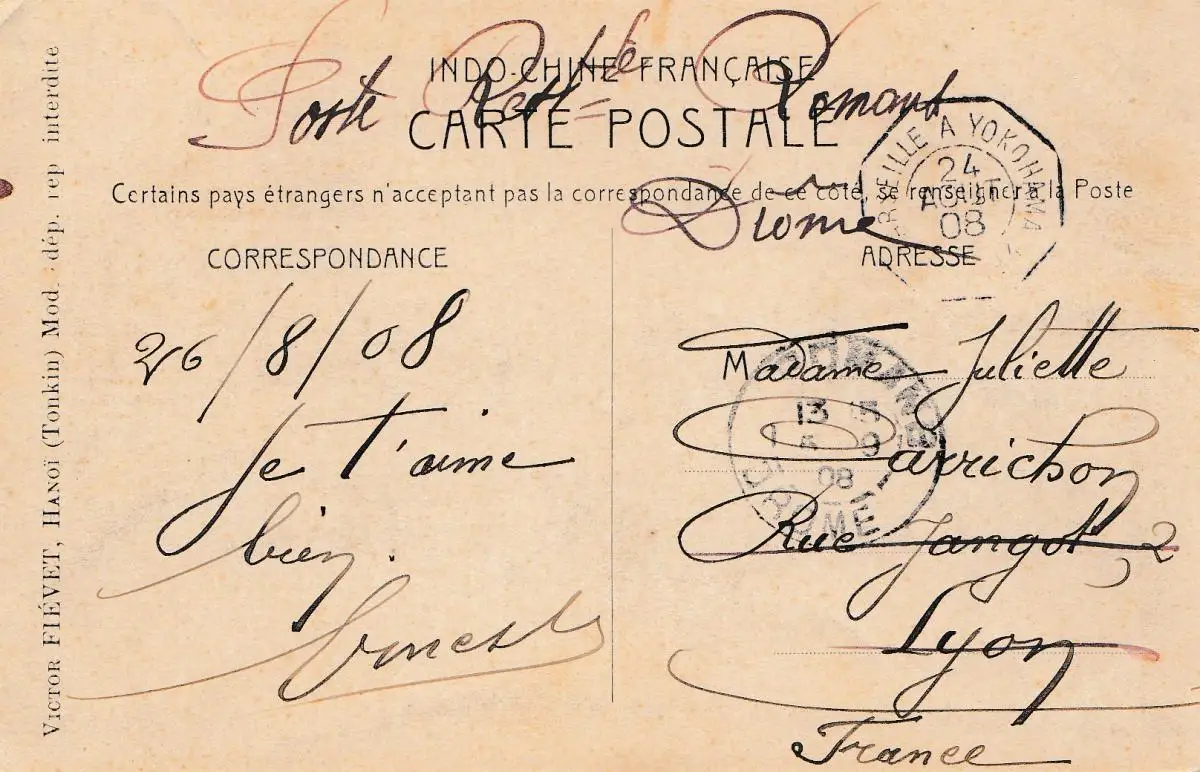 Poste Rest^te Romans
INDO-CHINE FRANÇAISE
CARTE POSTALE
Certains pays étrangers n'acceptent pas la correspondance de ce côté, se renseigner à la Poste
Drome
MARSEILLE A YOKOHAMA
24
AOUT
08
CORRESPONDANCE
ADRESSE
26/8/08
Je t'aime
bien.
Ernest
Madame Juliette
Carrichon
Rue Jangot, 2
Lyon
France
13
5 9
08
DROME
VICTOR FIÉVET, HANOÏ (Tonkin) Mod. dép. rep interdite